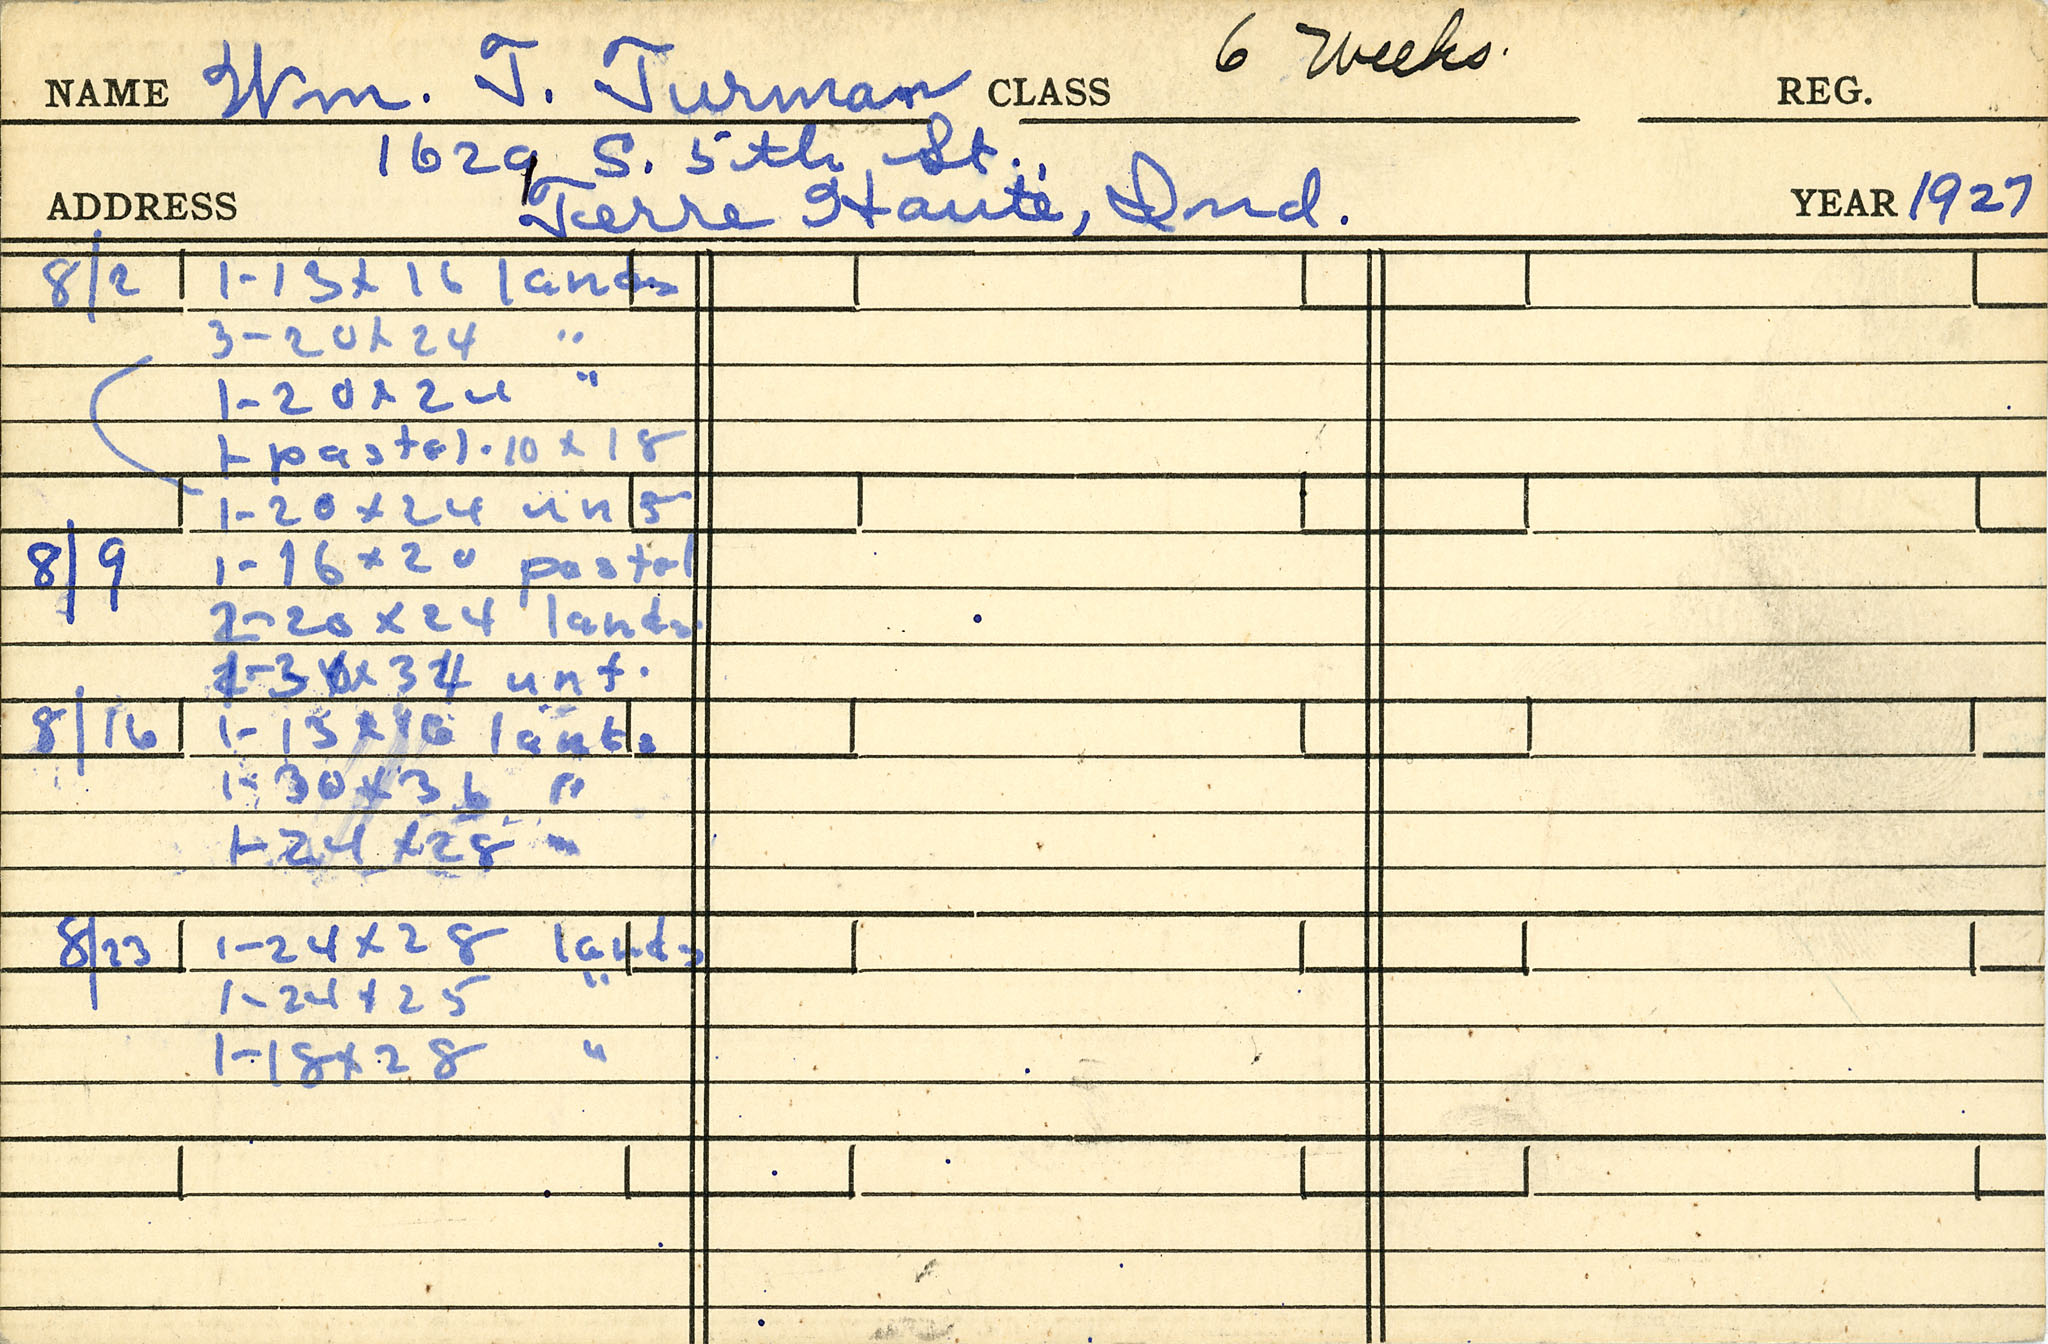 NAME Wm. T. Turman CLASS 6 Weeks. REG.
1629 S. 5th St.,
ADDRESS Terre Haute, Ind. YEAR 1927
8/2 1-13x16 lands
3-20x24 "
1-20x24 "
1-pastal. 10x18
1-20x24 un 5
8/9 1-16x20 pastal
2-20x24 lands.
unf.
8/16 1-13x16 lands
1-30x36 "
1-24x28 "
8/23 1-24x28 lands
1-24x25 "
1-18x28 "